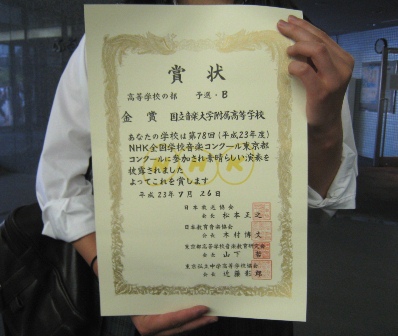 賞状
高等学校の部 予選・B
金賞 国立音楽大学附属高等学校
あなたの学校は第78回（平成23年度）
NHK全国学校音楽コンクール東京都
コンクールに参加され素晴らしい演奏を
披露されました
よってこれを賞します
平成23年7月26日
日本放送協会
会長 松本正之
日本教育音楽協会
会長 木村博文
東京都高等学校音楽教育研究会
会長 山下
東京私立中学高等学校協会
会長 近藤彰郎
NHK